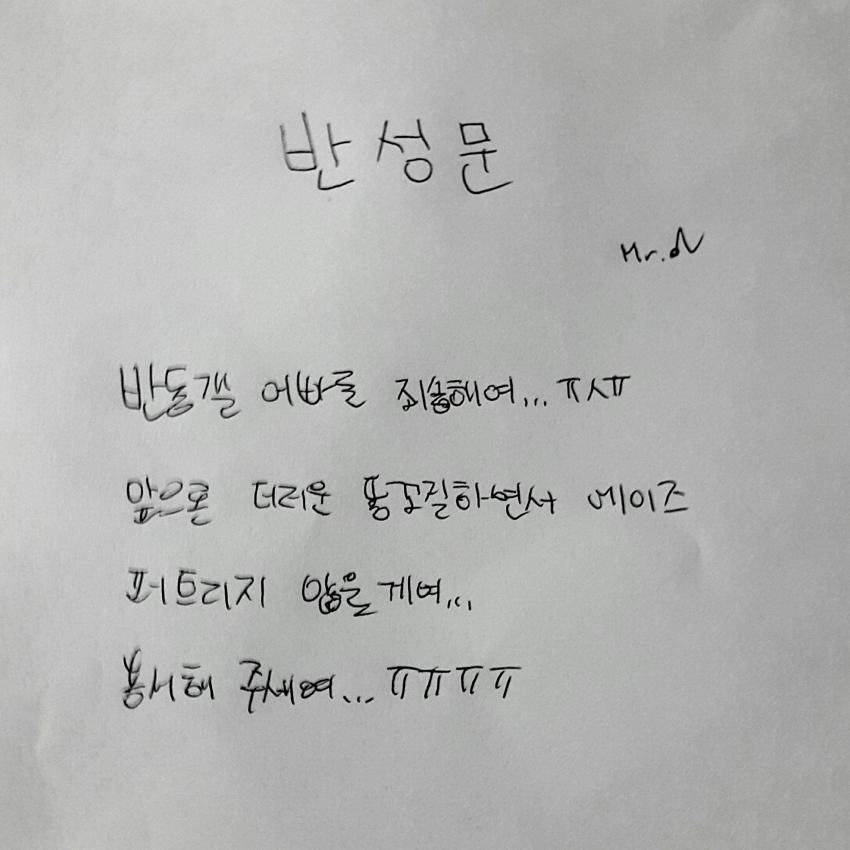 반성문
Mr.
반동갤 어빠들 죄송해여... ㅠㅅㅠ
앞으론 더러운 똥꼬질하면서 에이즈
퍼트리지 않을게여...
용서해 주세여... ㅠㅠㅠㅠ